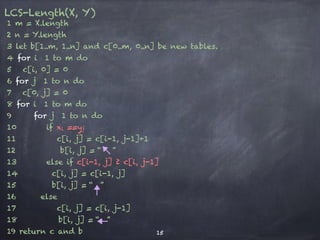 LCS-Length(X, Y)
1 m = X.length
2 n = Y.length
3 let b[1..m, 1..n] and c[0..m, 0..n] be new tables.
4 for i 1 to m do
5 c[i, 0] = 0
6 for j 1 to n do
7 c[0, j] = 0
8 for i 1 to m do
9 for j 1 to n do
10 if xi ==yj
11 c[i, j] = c[i-1, j-1]+1
12 b[i, j] = "↖"
13 else if c[i-1, j] ≥ c[i, j-1]
14 c[i, j] = c[i-1, j]
15 b[i, j] = "↑"
16 else
17 c[i, j] = c[i, j-1]
18 b[i, j] = "←"
19 return c and b
15